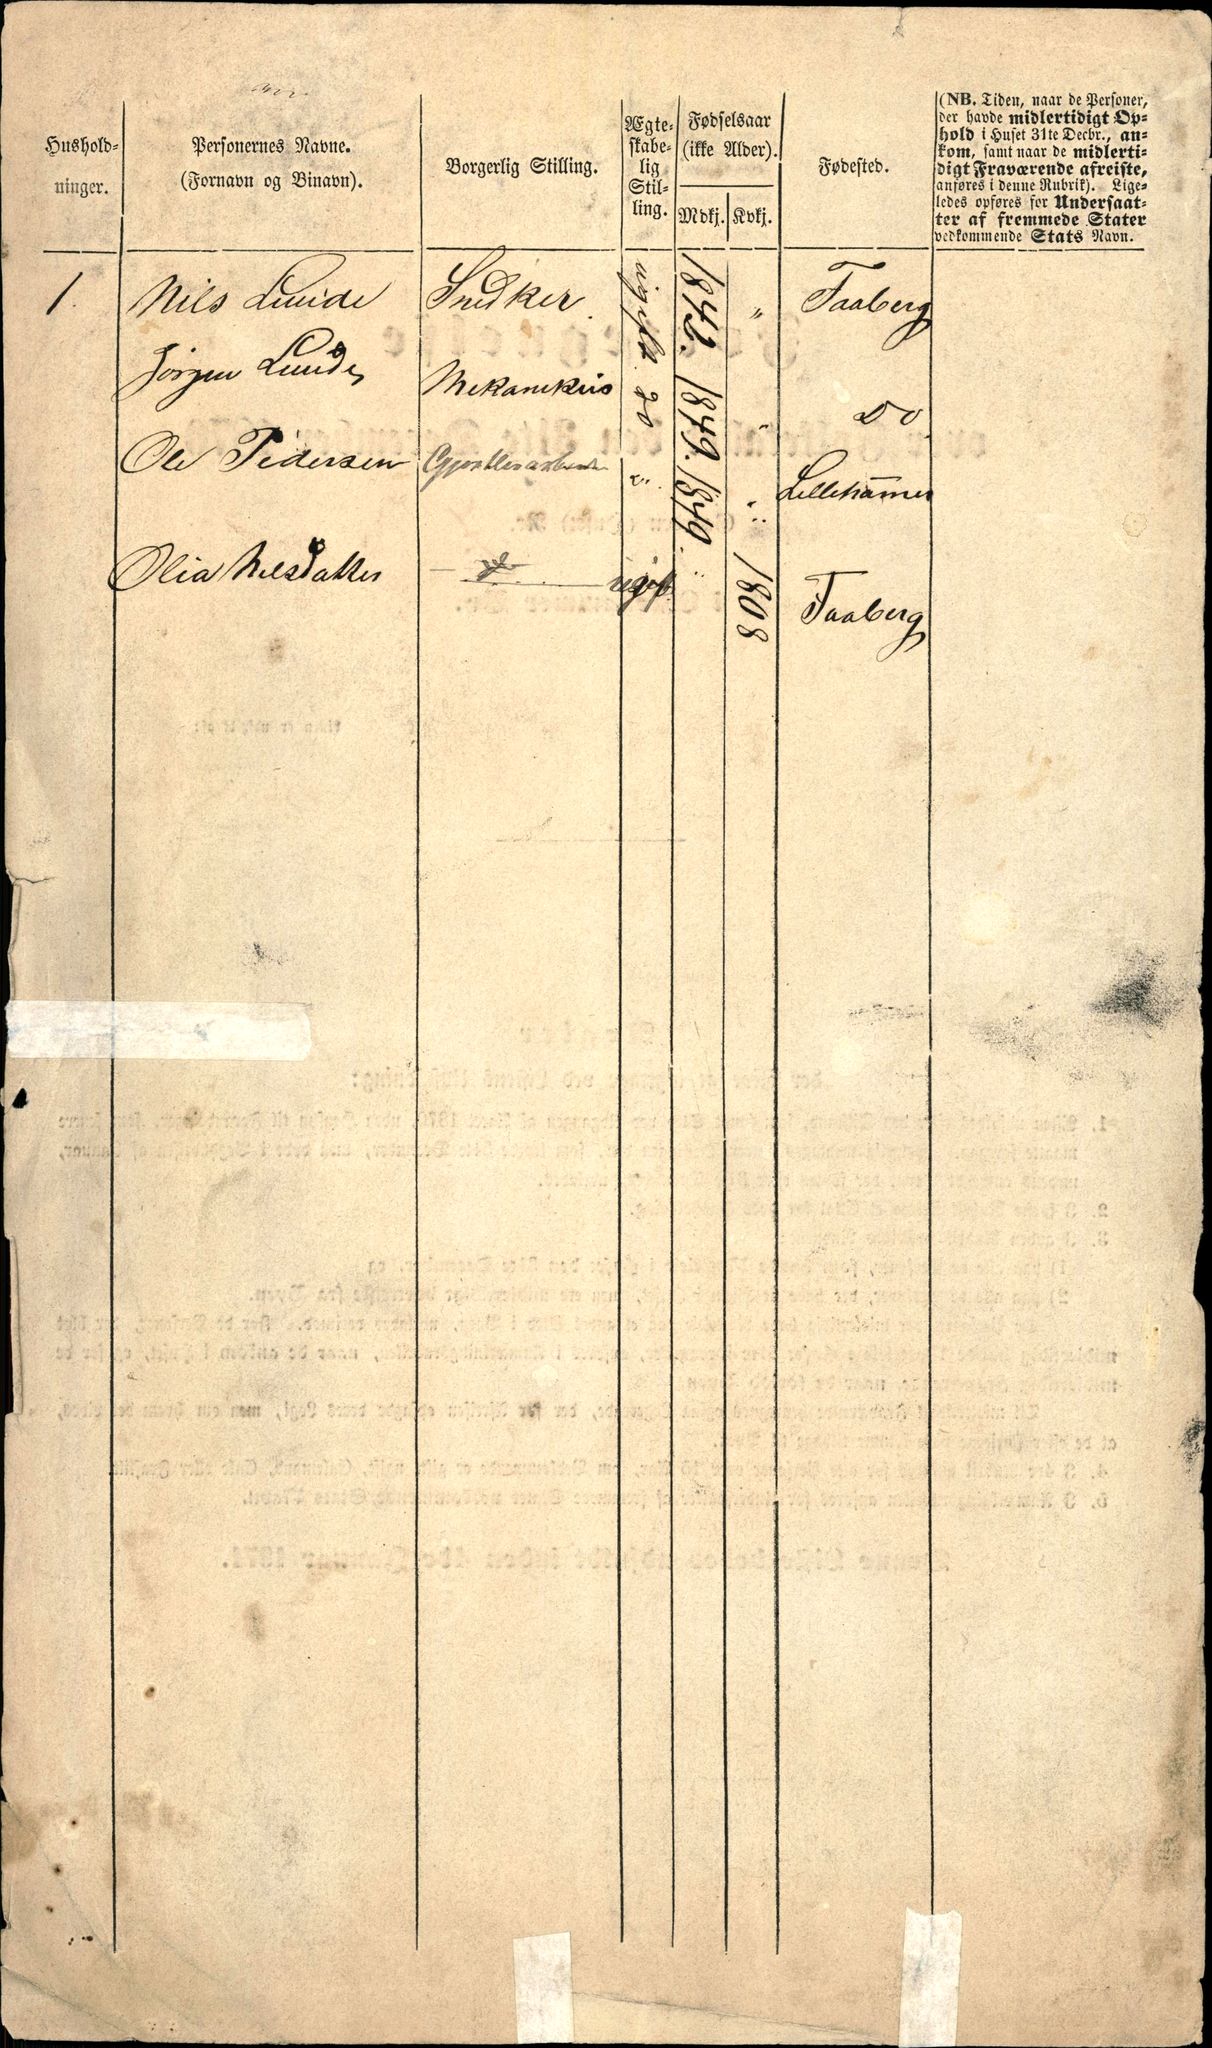 Hushold-
ninger.
Personernes Navne.
(Fornavn og Binavn).
Borgerlig Stilling.
Ægte-
skabe-
lig
Stil-
ling.
Fødselsaar
(ikke Alder).
Mdkj. Kvkj.
Fødested.
(NB. Tiden, naar de Personer,
der havde midlertidigt Op-
hold i Huset 31te Decbr., an-
kom, samt naar de midlerti-
digt Fraværende afreiste,
anføres i denne Rubrik). Lige-
ledes opføres for Undersaat-
ter af fremmede Stater
vedkommende Stats Navn.
1. Nils Lunde Snedker. ugift 1842. " Faaberg
Jörgen Lunde Mekanikus do 1849. " Do
Ole Pedersen " 1849. " Lillehammer
Olia Nilsdatter ugift " 1808 Faaberg